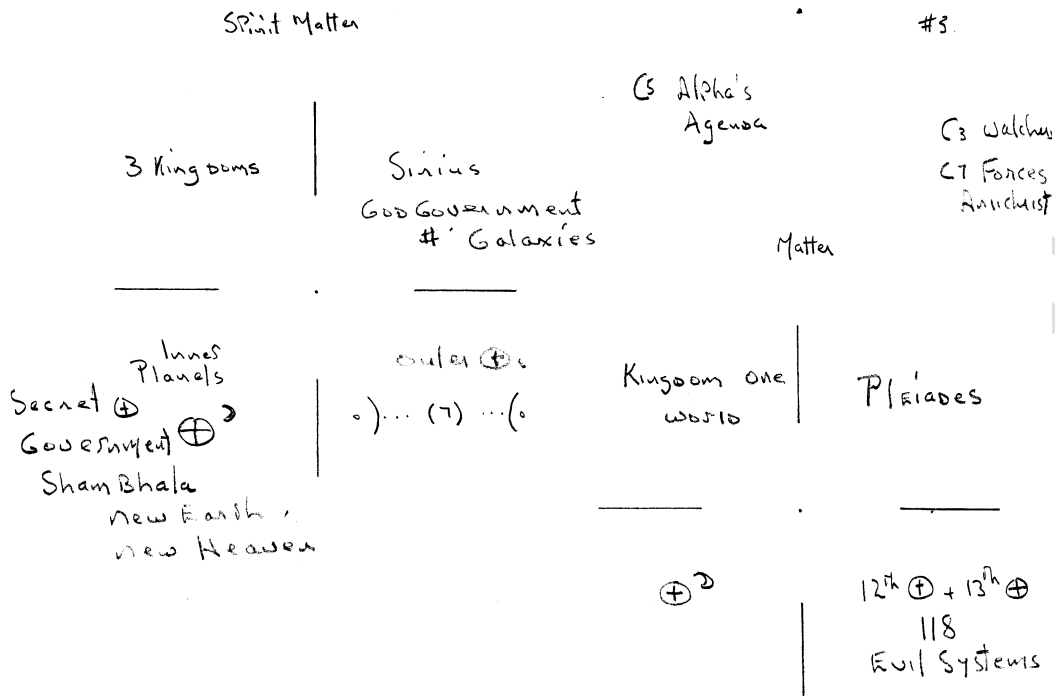 Spirit Matter
#3.
C5 Alpha's
Agenda
C3 Watchers
C7 Forces
Antichrist
3 Kingdoms
Sirius
God Government
# Galaxies
Matter
Inner
Planets
Secret ⊕
Government ⊕
ShamBhala
new Earth,
new Heaven
outer ⊕s
o)... (7) ...(o
Kingdom one
world
Pleiades
⊕
12th ⊕ + 13th ⊕
118
Evil Systems